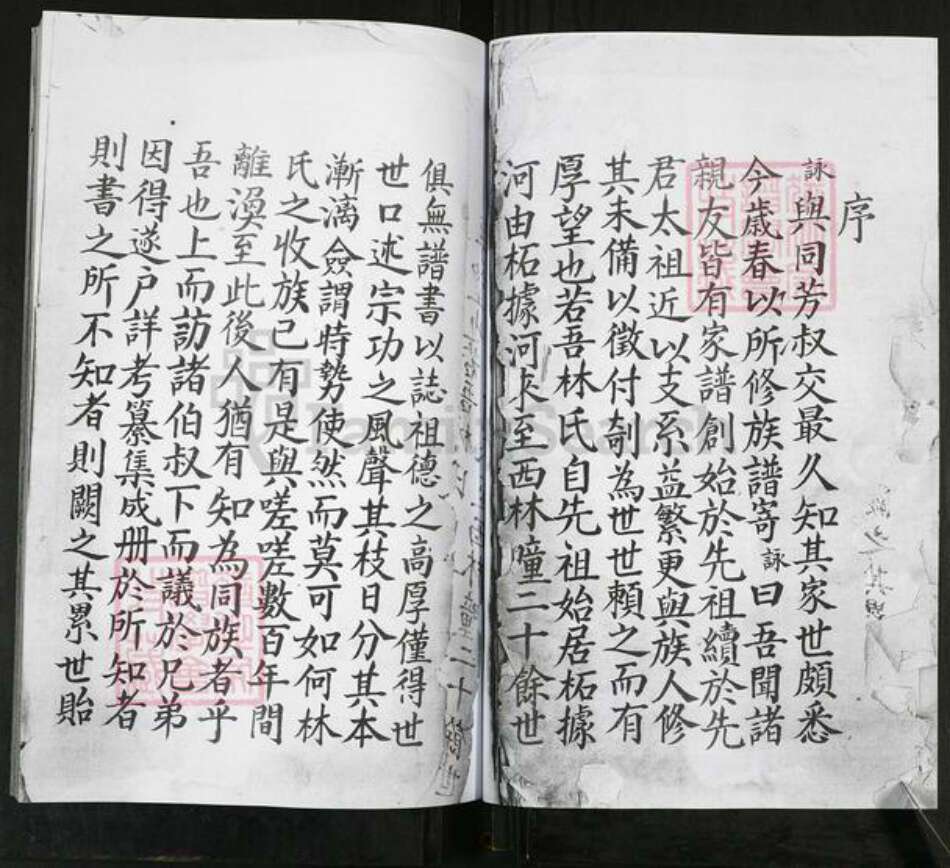 序
詠與同芳叔交最久知其家世頗悉
今歲春以所修族譜寄詠曰吾聞諸
親友皆有家譜創始於先祖續於先
君太祖近以支系益繁更與族人修
其未備以徵付剞為世世賴之而有
厚望也若吾林氏自先祖始居柘據
河由柘據河求至西林疃二十餘世
俱無譜書以誌祖德之高厚僅得世
世口述宗功之風聲其枝日分其本
漸漓僉謂時勢使然而莫可如何林
氏之收族已有是與嗟嗟數百年間
離渙至此後人猶有知為同族者乎
吾也上而訪諸伯叔下而議於兄弟
因得遂戶詳考纂集成册於所知者
則書之所不知者則闕之其累世貽
FamilySearch